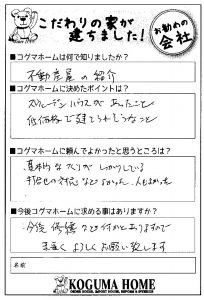 こだわりの家が
建ちました!
お勧めの
会社
■コグマホームは何で知りましたか?
不動産屋の紹介
■コグマホームに決めたポイントは?
スウェーデンハウスで あったこと
低価格で建てれそうなこと
■コグマホームに頼んでよかったと思うところは?
基本的なつくりが しっかりしている
対応など よかった 人もよかった
■今後コグマホームに求める事はありますか?
今後 修繕など 何かとありますので
末長く よろしくお願い致します
名前
KOGUMA HOME